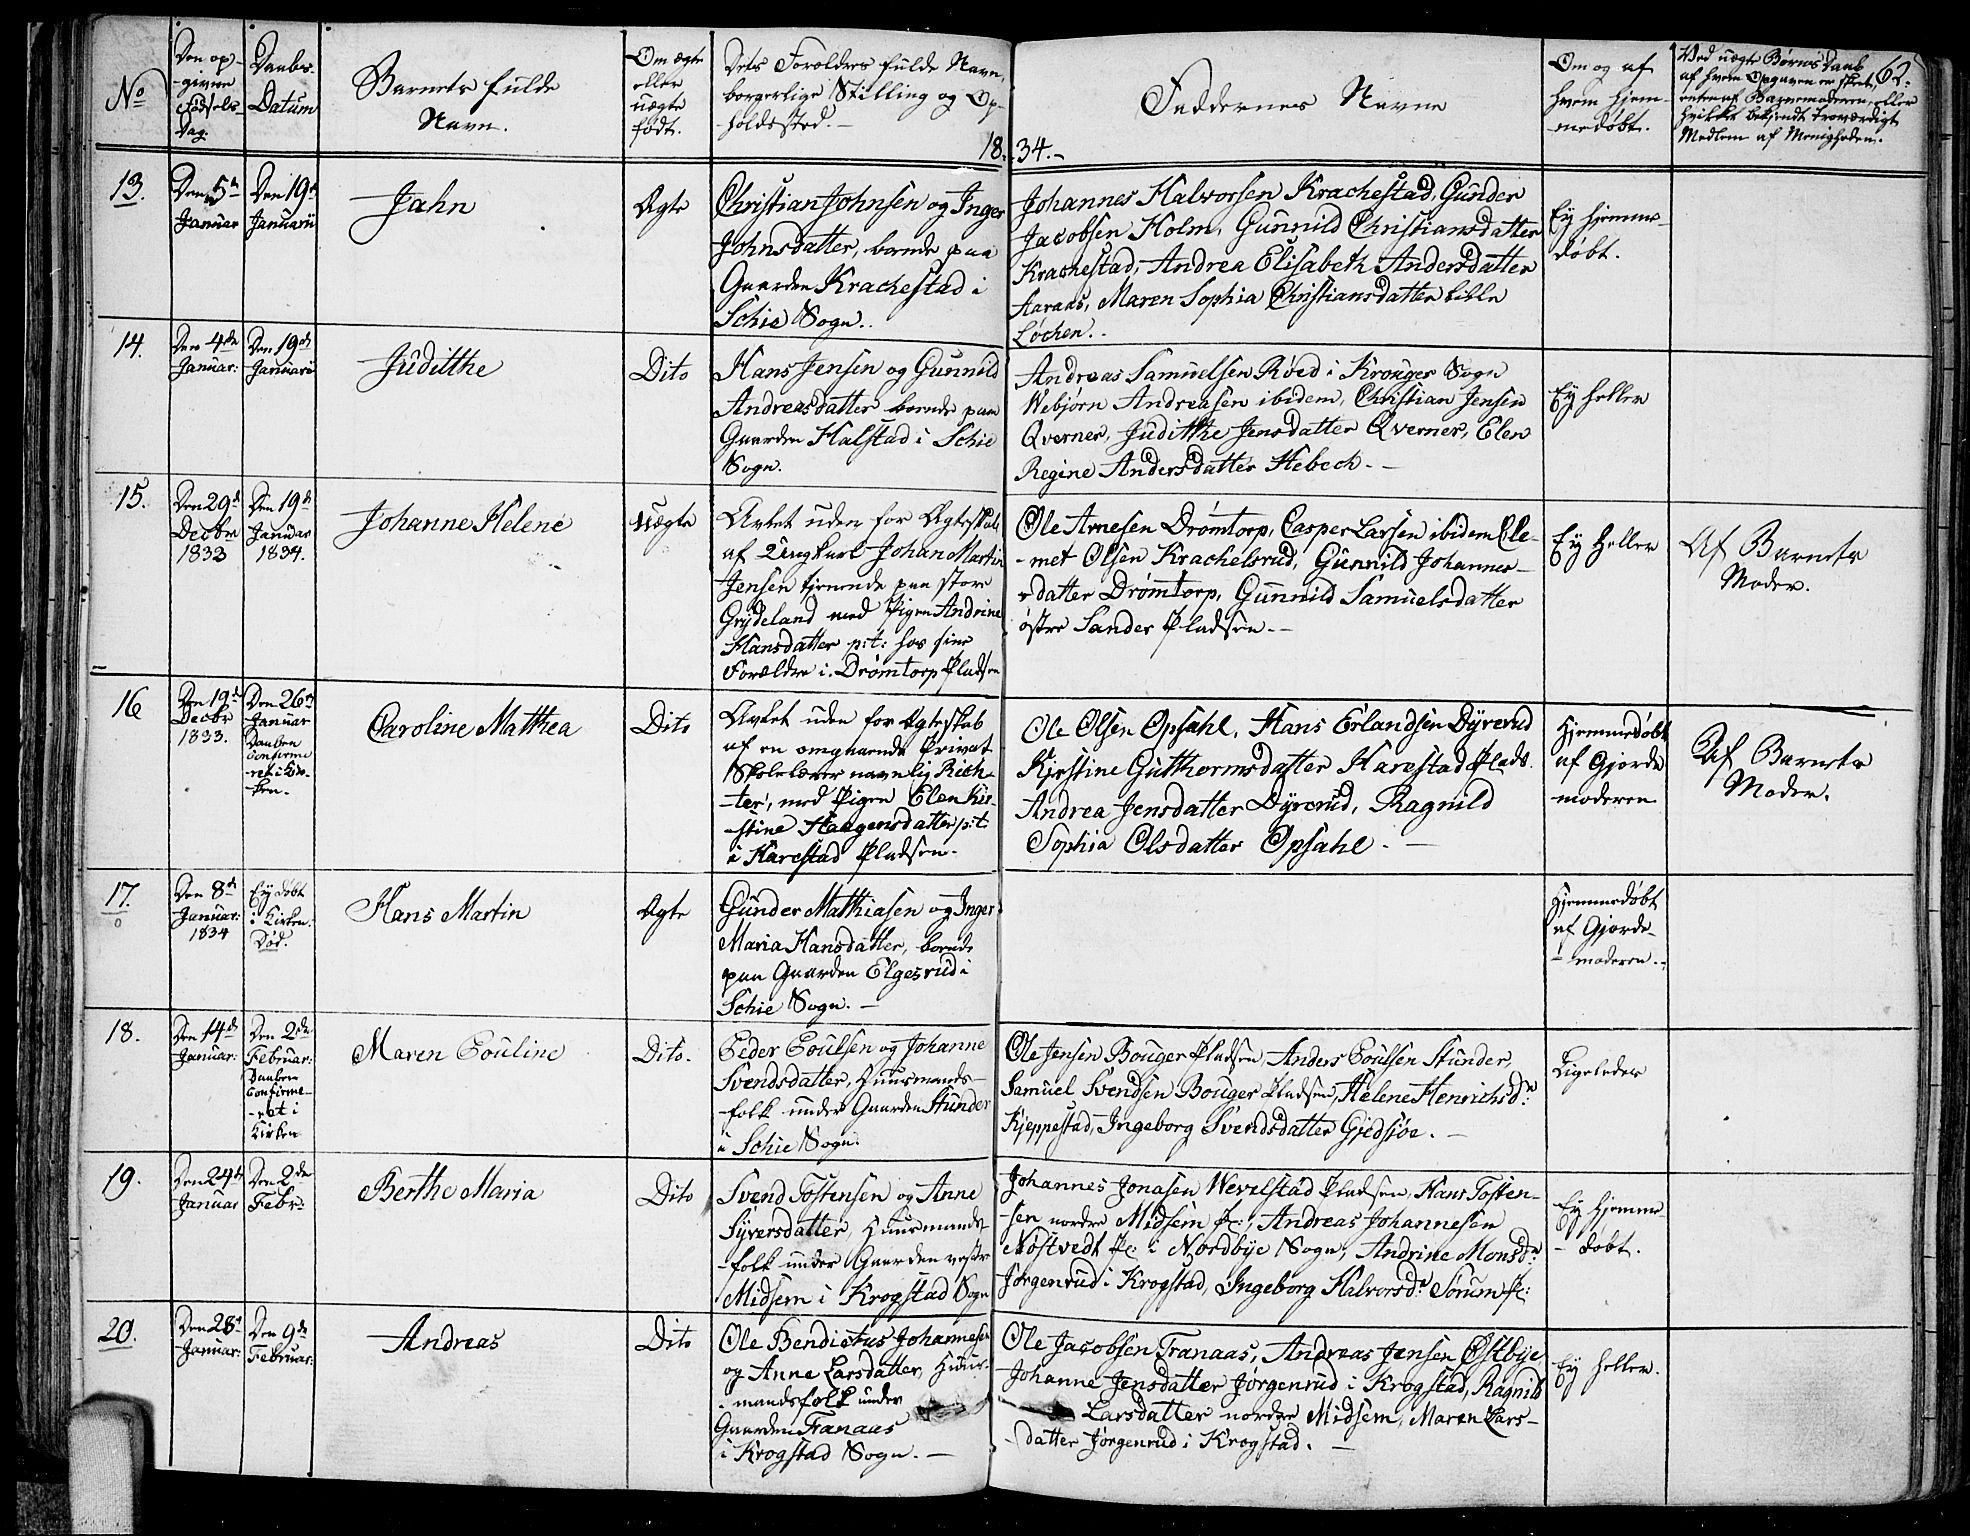 No
Den op-
-givne
Fødsels-
Dag.
Daabs-
Datum
Barnets fulde
Navn.
Om ægte
eller
uægte
født.
Dets Forældres fulde Navn,
borgerlige Stilling og Op-
-holdssted.
Faddernes Navne
Om og af
hvem hjem-
medøbt.
Ved uægte Børns Daab
af hvem Opgaven er skeet,
enten af Barnemoderen, eller
hvilket bekjendt troværdigt
Medlem af Menigheden.
62.
18
34.
13.
Den 5te
Januar
Den 19de
Januarii
Jahn
Ægte
Christian Johnsen og Inger
Johnsdatter, boende paa
Gaarden Krachestad i
Schie Sogn.
Johannes Halvorsen Krachestad, Gunder
Jacobsen Holm, Gunnild Christiansdatter
Krachestad, Andrea Elisabeth Andersdatter
Aaraas, Maren Sophia Christiansdatter Lille
Løchen.
Ey hjemme-
døbt.
14.
Den 4de
Januar:
Den 19de
Januarii
Juditthe
Dito
Hans Jensen og Gunnild
Andreasdatter boende paa
Gaarden Halstad i Schie
Sogn.
Andreas Samuelsen Røed i Krouger Sogn
Webjørn Andreasen ibidem, Christian Jensen
Qverner, Juditthe Jensdatter Qverner, Elen
Regine Andersdatter Hebech.
Ey heller
15.
Den 29de
Decbr
1833
Den 19de
Januar
1834.
Johanne Helene
Uægte
Avlet uden for Ægteskab
af Ungkarl Johan Martin
Jensen tjenende paa store
Grydeland med Pigen Andrine
Hansdatter p:t: hos sine
Forældre i Drømtorp Pladsen
Ole Arnesen Drømtorp, Casper Larsen ibidem Cle-
-met Olsen Krachelsrud, Gunnild Johannes-
-datter Drømtorp, Gunnild Samuelsdatter
østre Sander Pladsen.
Ey heller
Af Barnets
Moder.
16
Den 19de
Decbr
1833.
Den 26de
Januar
Daaben
Confirme
-ret i Kir-
ken.
Caroline Matthea
Dito
Avlet uden for Ægteskab
af en omgaaende Privat
Skolelærer navnlig Rich-
-ter, med Pigen Elen Kir-
-stine Haagensdatter p:t:
i Harestad Pladsen.
Ole Olsen Opsahl, Hans Erlandsen Dyrerud
Kjerstine Gutthormsdatter Harestad Plads.
Andrea Jensdatter Dyrerud, Ragnild
Sophia Olsdatter Opsahl.
Hjemmedøbt
af Gjorde
moderen
Af Barnets
Moder.
17.
Den 8de
Januar:
1834
Ey døbt
i Kirken.
Død.
Hans Martin
Ægte
Gunder Mathiasen og Inger
Maria Hansdatter, boende
paa Gaarden Elgesrud i
Schie Sogn.
Hjemmedøbt
af Gjorde-
-moderen.
18.
Den 14de
Januar:
Den 2den
Februar:
Daaben
Confirme-
-ret i
Kirken
Maren Pouline
Dito.
Peder Poulsen og Johanne
Svendsdatter, Huusmands-
-folk under Gaarden Stunder
i Schie Sogn.
Ole Jensen Bouger Pladsen, Anders Poulsen Stunder,
Samuel Svendsen Bouger Pladsen, Helene Henrichsdr
Kjeppestad, Ingeborg Svendsdatter Gjedsiøe.
Ligeledes
19.
Den 24de
Januar
Den 2den
Febr:
Berthe Maria
Dito
Svend Tostensen og Anne
Syversdatter, Huusmands-
-folk under Gaarden vestre
Midsem i Krogstad Sogn
Johannes Jonasen Wevelstad Pladsen, Hans Tosten-
-sen nordre Midsem Pl:, Andreas Johannesen
Nøstvedt Pl: i Nordbye Sogn, Andrine Monsdr
Jørgenrud i Krogstad, Ingeborg Halvorsdr Sørum Pl:
Ey hjemme-
-døbt.
20.
Den 28de
Januar:
Den 9de
Februar:
Andreas
Dito
Ole Bendictus Johannesen
og Anne Larsdatter, Huus-
-mandsfolk under
Gaarden Tranaas
i Krogstad Sogn.
Ole Jacobsen Tranaas, Andreas Jensen Østbye
Johanne Jensdatter Jørgenrud i Krogstad, Ragnild
Larsdatter nordre Midsem, Maren Lars-
-datter Jørgenrud i Krogstad.
Ey heller.